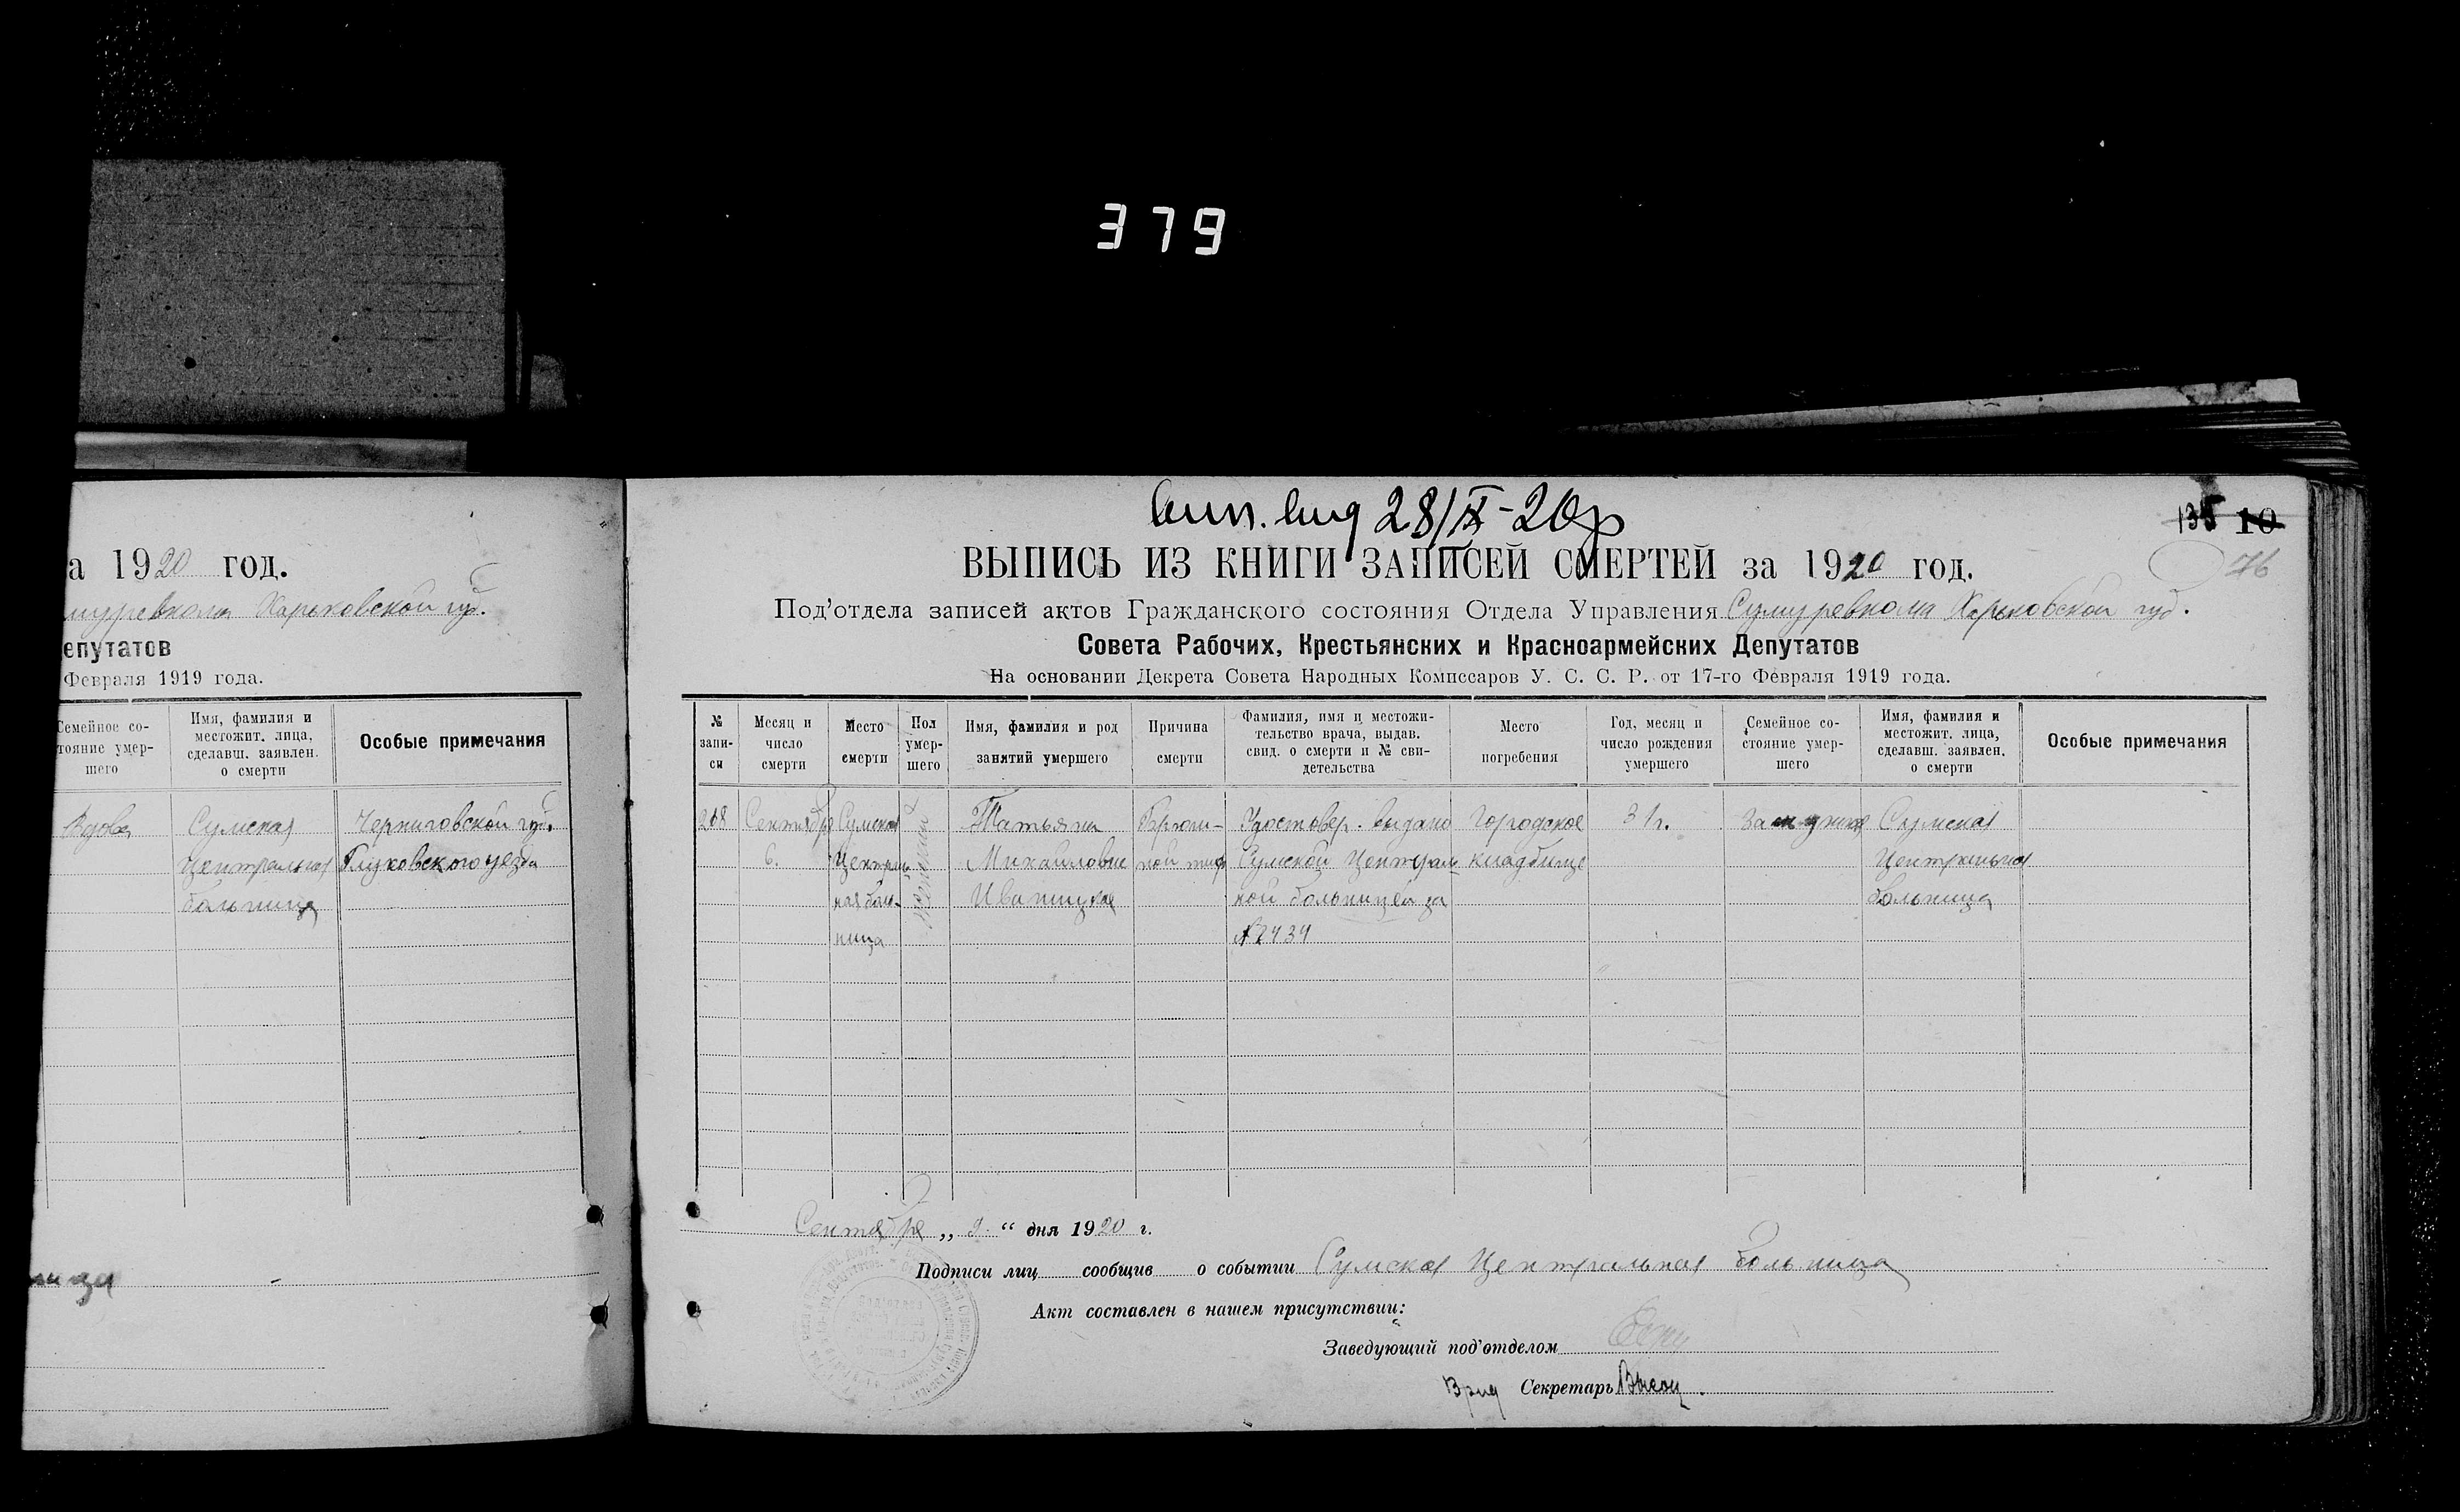 379
а 1920 год.
муревкома Харьковской губ.
епутатов
Февраля 1919 года.
Семейное со-
тояние умер-
шего
Имя, фамилия и
местожит. лица,
сделавш. заявлен.
о смерти
Особые примечания
Вдова
Сумская
Центральная
больница
Черниговской губ.
Глуховского уезда
ница
28/IX-20г
135 10
76
ВЫПИСЬ ИЗ КНИГИ ЗАПИСЕЙ СМЕРТЕЙ за 1920 год.
Под'отдела записей актов Гражданского состояния Отдела Управления Сумуревкома Харьковской губ.
Совета Рабочих, Крестьянских и Красноармейских Депутатов
На основании Декрета Совета Народных Комиссаров У. С. С. Р. от 17-го Февраля 1919 года.
№
запи-
си
Месяц и
число
смерти
Место
смерти
Пол
умер-
шего
Имя, фамилия и род
занятий умершего
Причина
смерти
Фамилия, имя и местожи-
тельство врача, выдав.
свид. о смерти и № сви-
детельства
Место
погребения
Год, месяц и
число рождения
умершего
Семейное со-
стояние умер-
шего
Имя, фамилия и
местожит. лица,
сделавш. заявлен.
о смерти
Особые примечания
218
Сентября
6.
Сумская
Централь
ная боль-
ница
женская
Татьяна
Михайловна
Иваницкая
Брюш-
ной тиф
Удостовер. выдано
Сумской Централь
ной больницей за
№ 2434
Городское
кладбище
31 г.
Замужняя
Сумская
Центральная
больница
Сентября „ 9 “ дня 1920 г.
Подписи лиц сообщив о событии Сумская Центральная больница
Акт составлен в нашем присутствии:
Заведующий под'отделом
Врид Секретарь